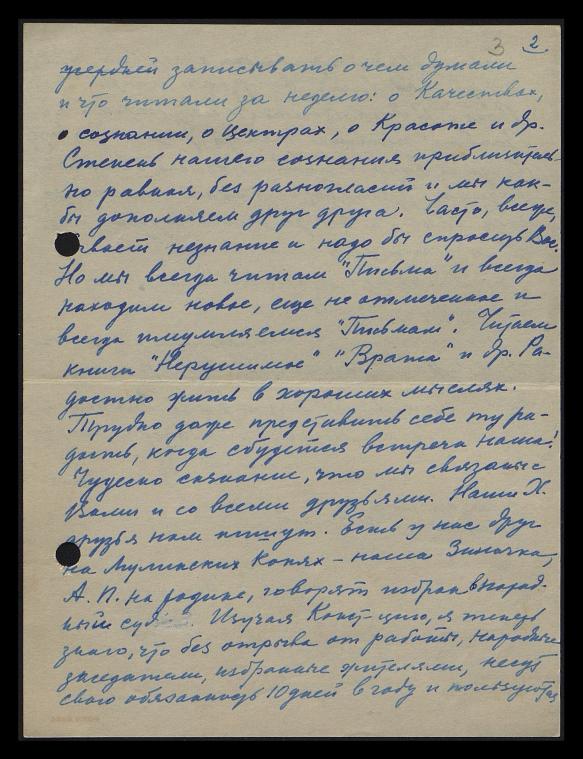 3 2
усердней записывать о чем думали
и что читали за неделю: о Качествах,
о сознании, о Центрах, о Красоте и др.
Степень нашего сознания приблизитель-
но равная, без разногласий и мы как-
бы дополняем друг друга. Часто, всюду,
незнание и надо бы спросить Вас.
Но мы всегда читаем "Письма" и всегда
находим новое, еще не отмеченное и
всегда изумляемся "Письмам". Читаем
книги "Нерушимое" "Врата" и др. Ра-
достно жить в хороших мыслях.
Трудно даже представить себе ту ра-
дость, когда сбудется встреча наша!
Чудесно сознание, что мы связаны с
Вами и со всеми друзьями. Наши Х.
друзья нам пишут. Есть у нас друг
на Копях – наша Зиночка,
А. П. на родине, говорят избран в народ-
ный суд Изучая Конст-цию, я теперь
знаю, что без отрыва от работы, народные
заседатели, избранные жителями, несут
свою обязанность 10 дней в году и пользуются